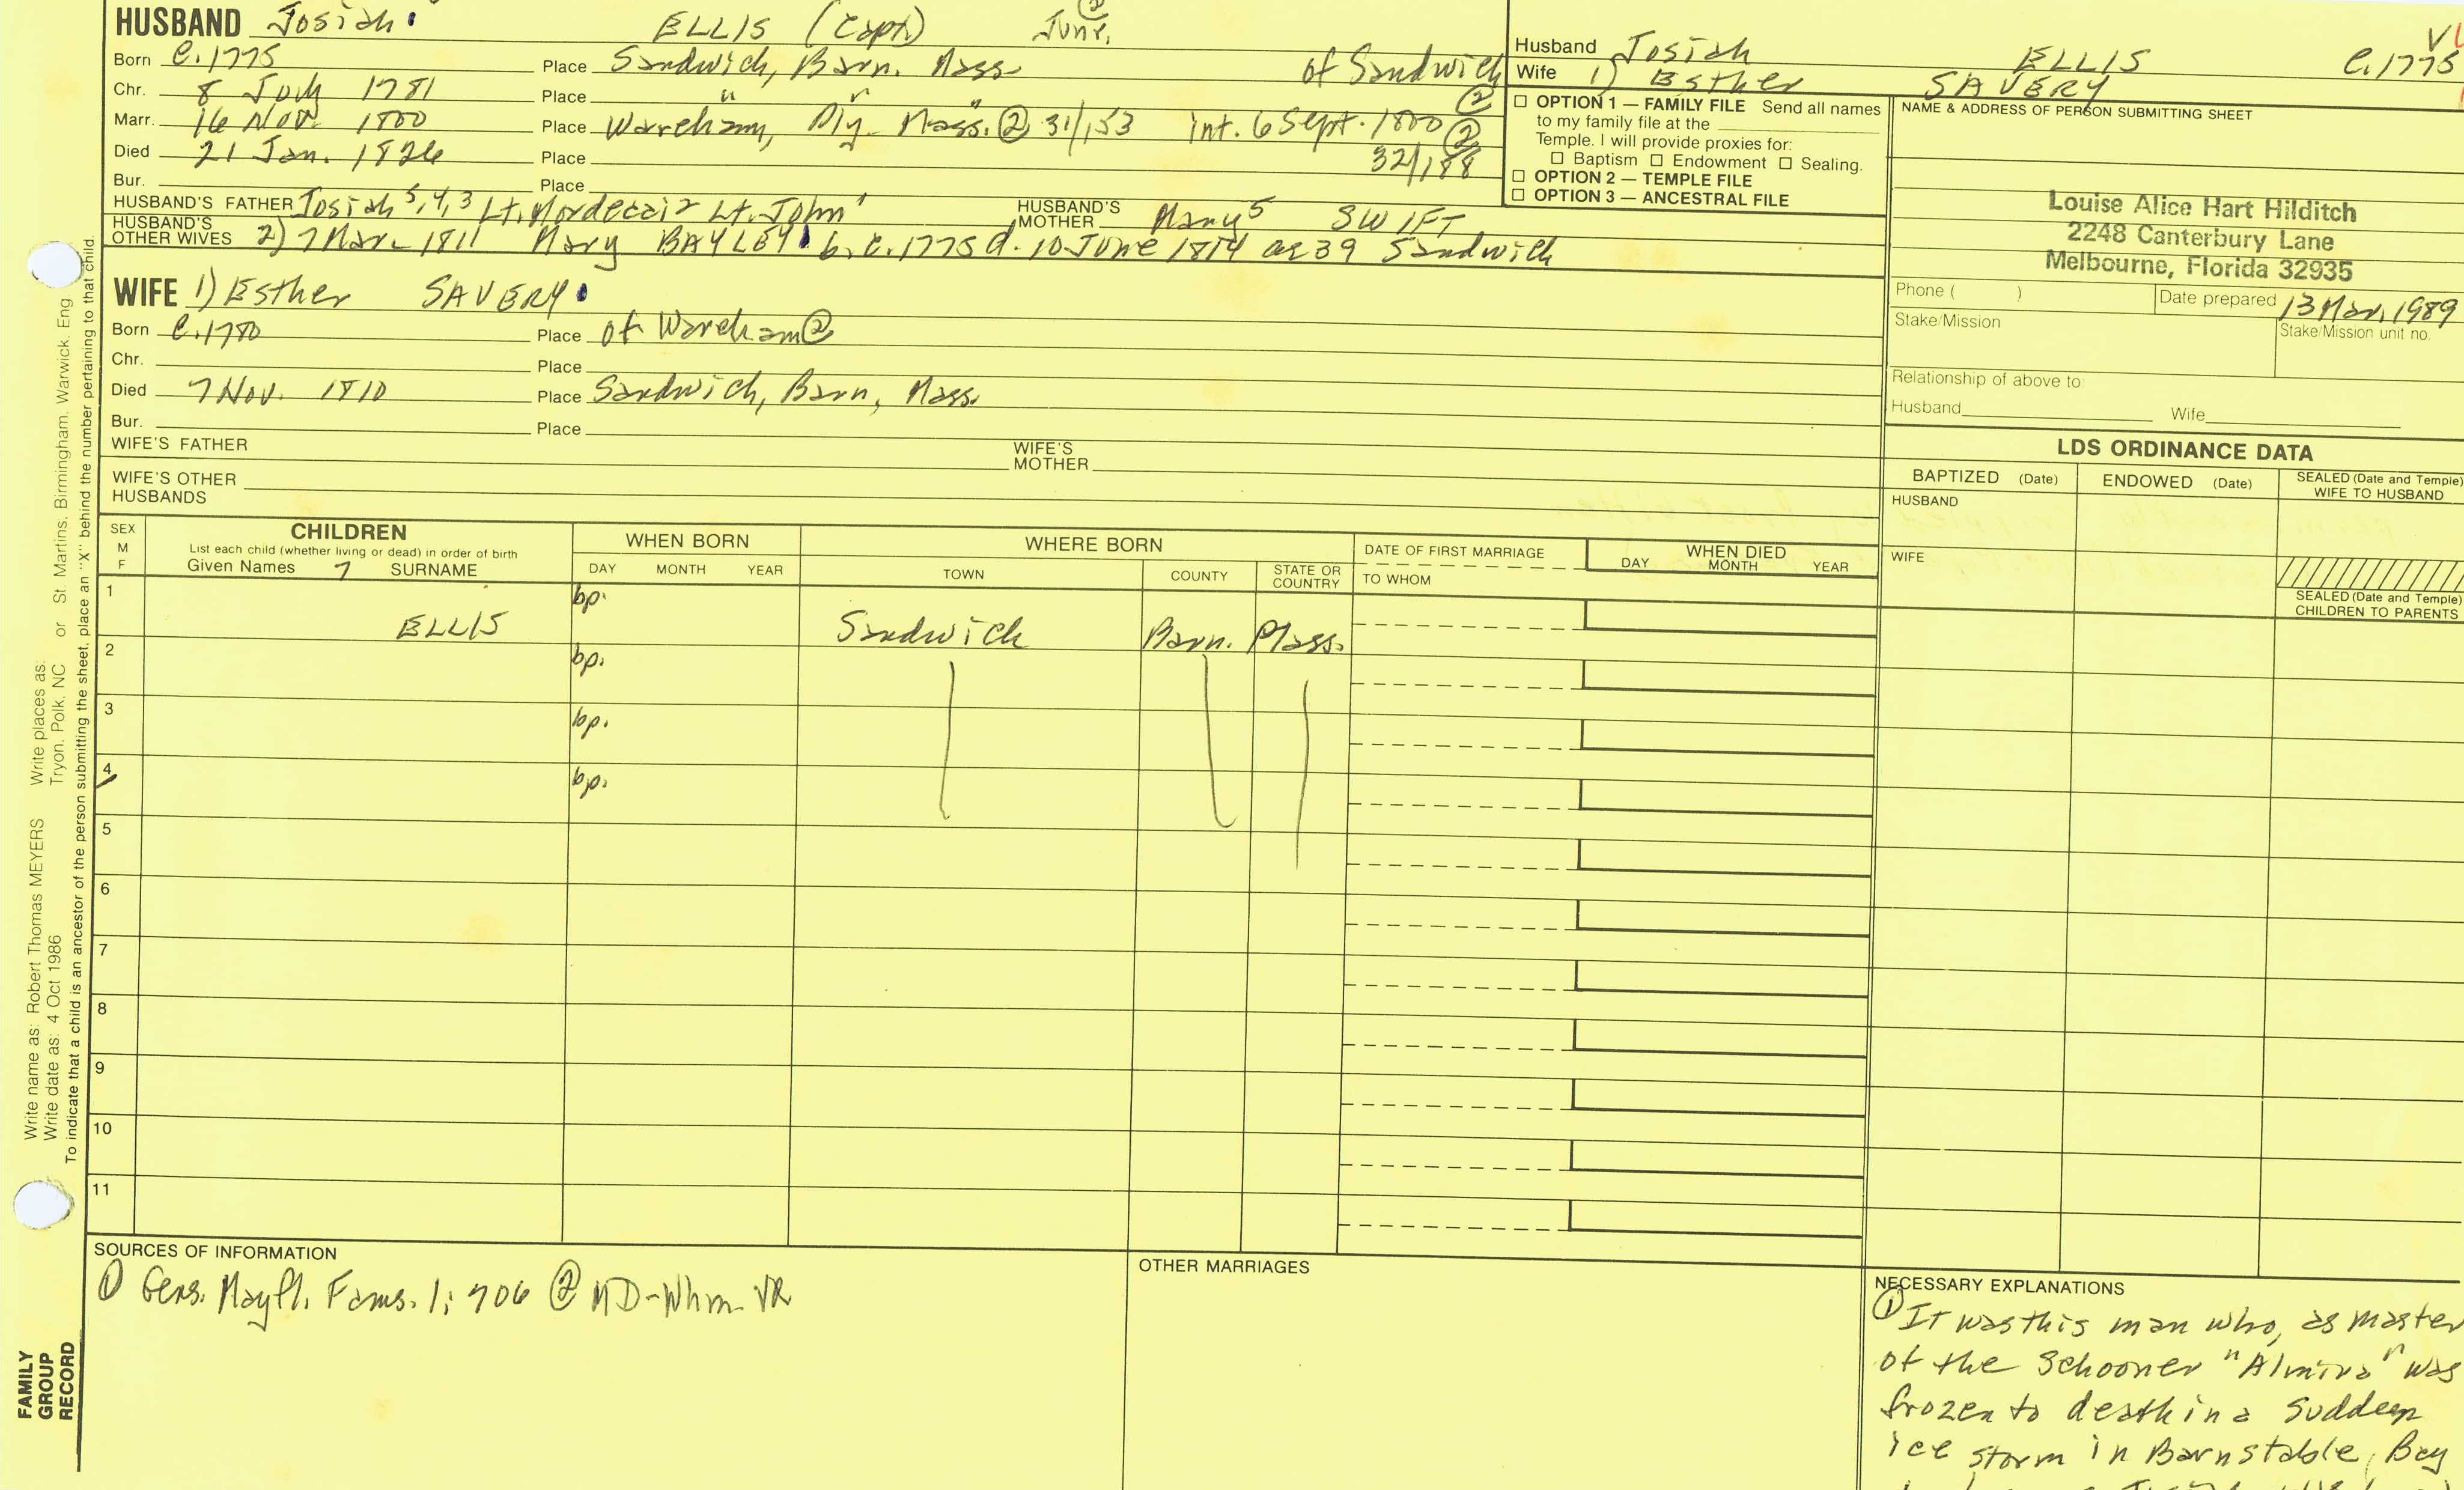 HUSBAND Josiah ELLIS (Capt) Junr. ②
Born c.1775 Place Sandwich, Barn. Mass. of Sandwich
Chr. 8 July 1781 Place " " " ②
Marr. 16 Nov. 1800 Place Wareham, Ply. Mass. ② 31/153 int. 6 Sept. 1800 ②
32/188
Died 21 Jan. 1826 Place
Bur. Place
HUSBAND'S FATHER Josiah 5,4,3 Lt. Mordecai 2 Lt. John 1 HUSBAND'S MOTHER Mary 5 SWIFT
HUSBAND'S OTHER WIVES 2) 7 Mar. 1811 Mary BAYLEY b. c.1775 d. 10 June 1814 ae 39 Sandwich
WIFE 1) Esther SAVERY
Born c.1780 Place of Wareham ②
Chr. Place
Died 7 Nov. 1810 Place Sandwich, Barn, Mass.
Bur. Place
WIFE'S FATHER WIFE'S MOTHER
WIFE'S OTHER HUSBANDS
Husband Josiah ELLIS c.1775
Wife 1) Esther SAVERY
OPTION 1 — FAMILY FILE Send all names
to my family file at the
Temple. I will provide proxies for:
Baptism Endowment Sealing.
OPTION 2 — TEMPLE FILE
OPTION 3 — ANCESTRAL FILE
NAME & ADDRESS OF PERSON SUBMITTING SHEET
Louise Alice Hart Hilditch
2248 Canterbury Lane
Melbourne, Florida 32935
Phone ( ) Date prepared 13 Mar. 1989
Stake/Mission Stake/Mission unit no.
Relationship of above to
Husband Wife
LDS ORDINANCE DATA
BAPTIZED (Date) ENDOWED (Date) SEALED (Date and Temple)
WIFE TO HUSBAND
HUSBAND
WIFE
SEALED (Date and Temple)
CHILDREN TO PARENTS
SEX
M
F
CHILDREN
List each child (whether living or dead) in order of birth
Given Names 7 SURNAME
WHEN BORN
DAY MONTH YEAR
WHERE BORN
TOWN COUNTY STATE OR COUNTRY
DATE OF FIRST MARRIAGE
TO WHOM
WHEN DIED
DAY MONTH YEAR
1 ELLIS bp. Sandwich Barn. Mass.
2 bp.
3 bp.
4 bp.
5
6
7
8
9
10
11
SOURCES OF INFORMATION
① Gens. Mayfl. Fams. 1: 706 ② MD-Whm-VR
OTHER MARRIAGES
NECESSARY EXPLANATIONS
① It was this man who, as master
of the schooner "Almira" was
frozen to death in a sudden
ice storm in Barnstable Bay
Write name as: Robert Thomas MEYERS Write places as: St. Martins, Birmingham, Warwick, Eng
Write date as: 4 Oct 1986 Tryon, Polk, NC or
To indicate that a child is an ancestor of the person submitting the sheet, place an "X" behind the number pertaining to that child.
FAMILY
GROUP
RECORD